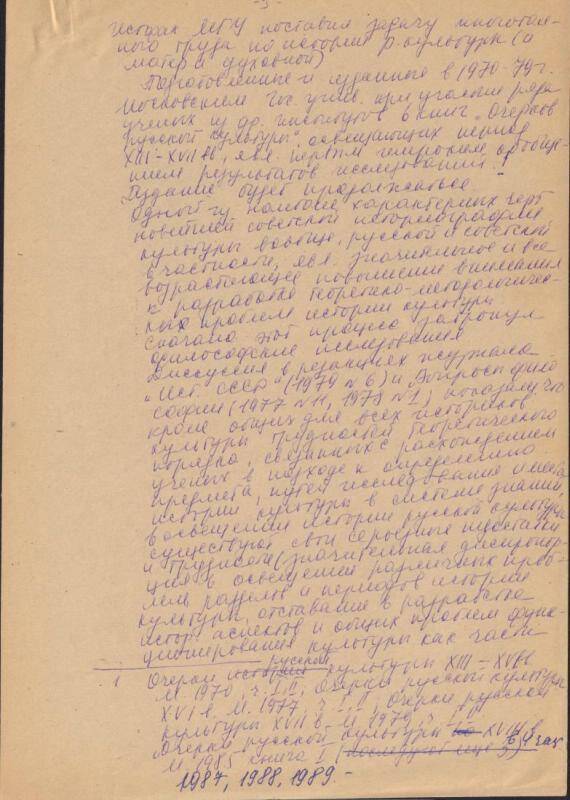 - 3 -
Истфак МГУ поставил задачу многотом-
ного труда по истории р. культуры (и
матер и духовной)
Подготовленные и изданные в 1970-79 г.
Московским Гос. унив. при участии ряда
ученых из др. институтов 6 книг "Очерков
русской культуры", освещающих период
XIII-XVII вв, явл. первым
результатов исследований. 1
Издание будет продолжаться
Одной из наиболее характерных черт
новейшей советской историографии
культуры вообще, русской и советской
в частности, явл. значительное и все
возрастающее повышение внимания
к разработке теоретико-методологичес-
ких проблем истории культуры
Сначала этот процесс затронул
философские исследования
Дискуссия в редакциях журнала
"Ист. СССР" (1979 № 6) и "Вопросы фило
софии (1977 № 11, 1978 № 1) показали, что
кроме общих для всех историков
культуры трудностей теоретического
порядка, связанных с расхождением
ученых в подходе к определению
предмета, путей исследования и места
истории культуры в системе знаний,
в освещении истории русской культуры
существуют свои серьезные недостатки
и трудности (значительная диспропор-
ция в освещении различных проб-
лем, разделов и периодов истории
культуры, отставание в разработке
истор. аспектов и общих проблем функ-
ционирования культуры как части
1 Очерки истории русской культуры XIII-XV вв
М. 1970, ч. I, II, Очерки русской культуры
XVI в. М. 1977, ч. I, II, Очерки русской
культуры XVII в. М. 1979,
Очерки русской культуры XVIII в.
М. 1985 книга I (последуют еще 3) в 4х
1987, 1988, 1989. -